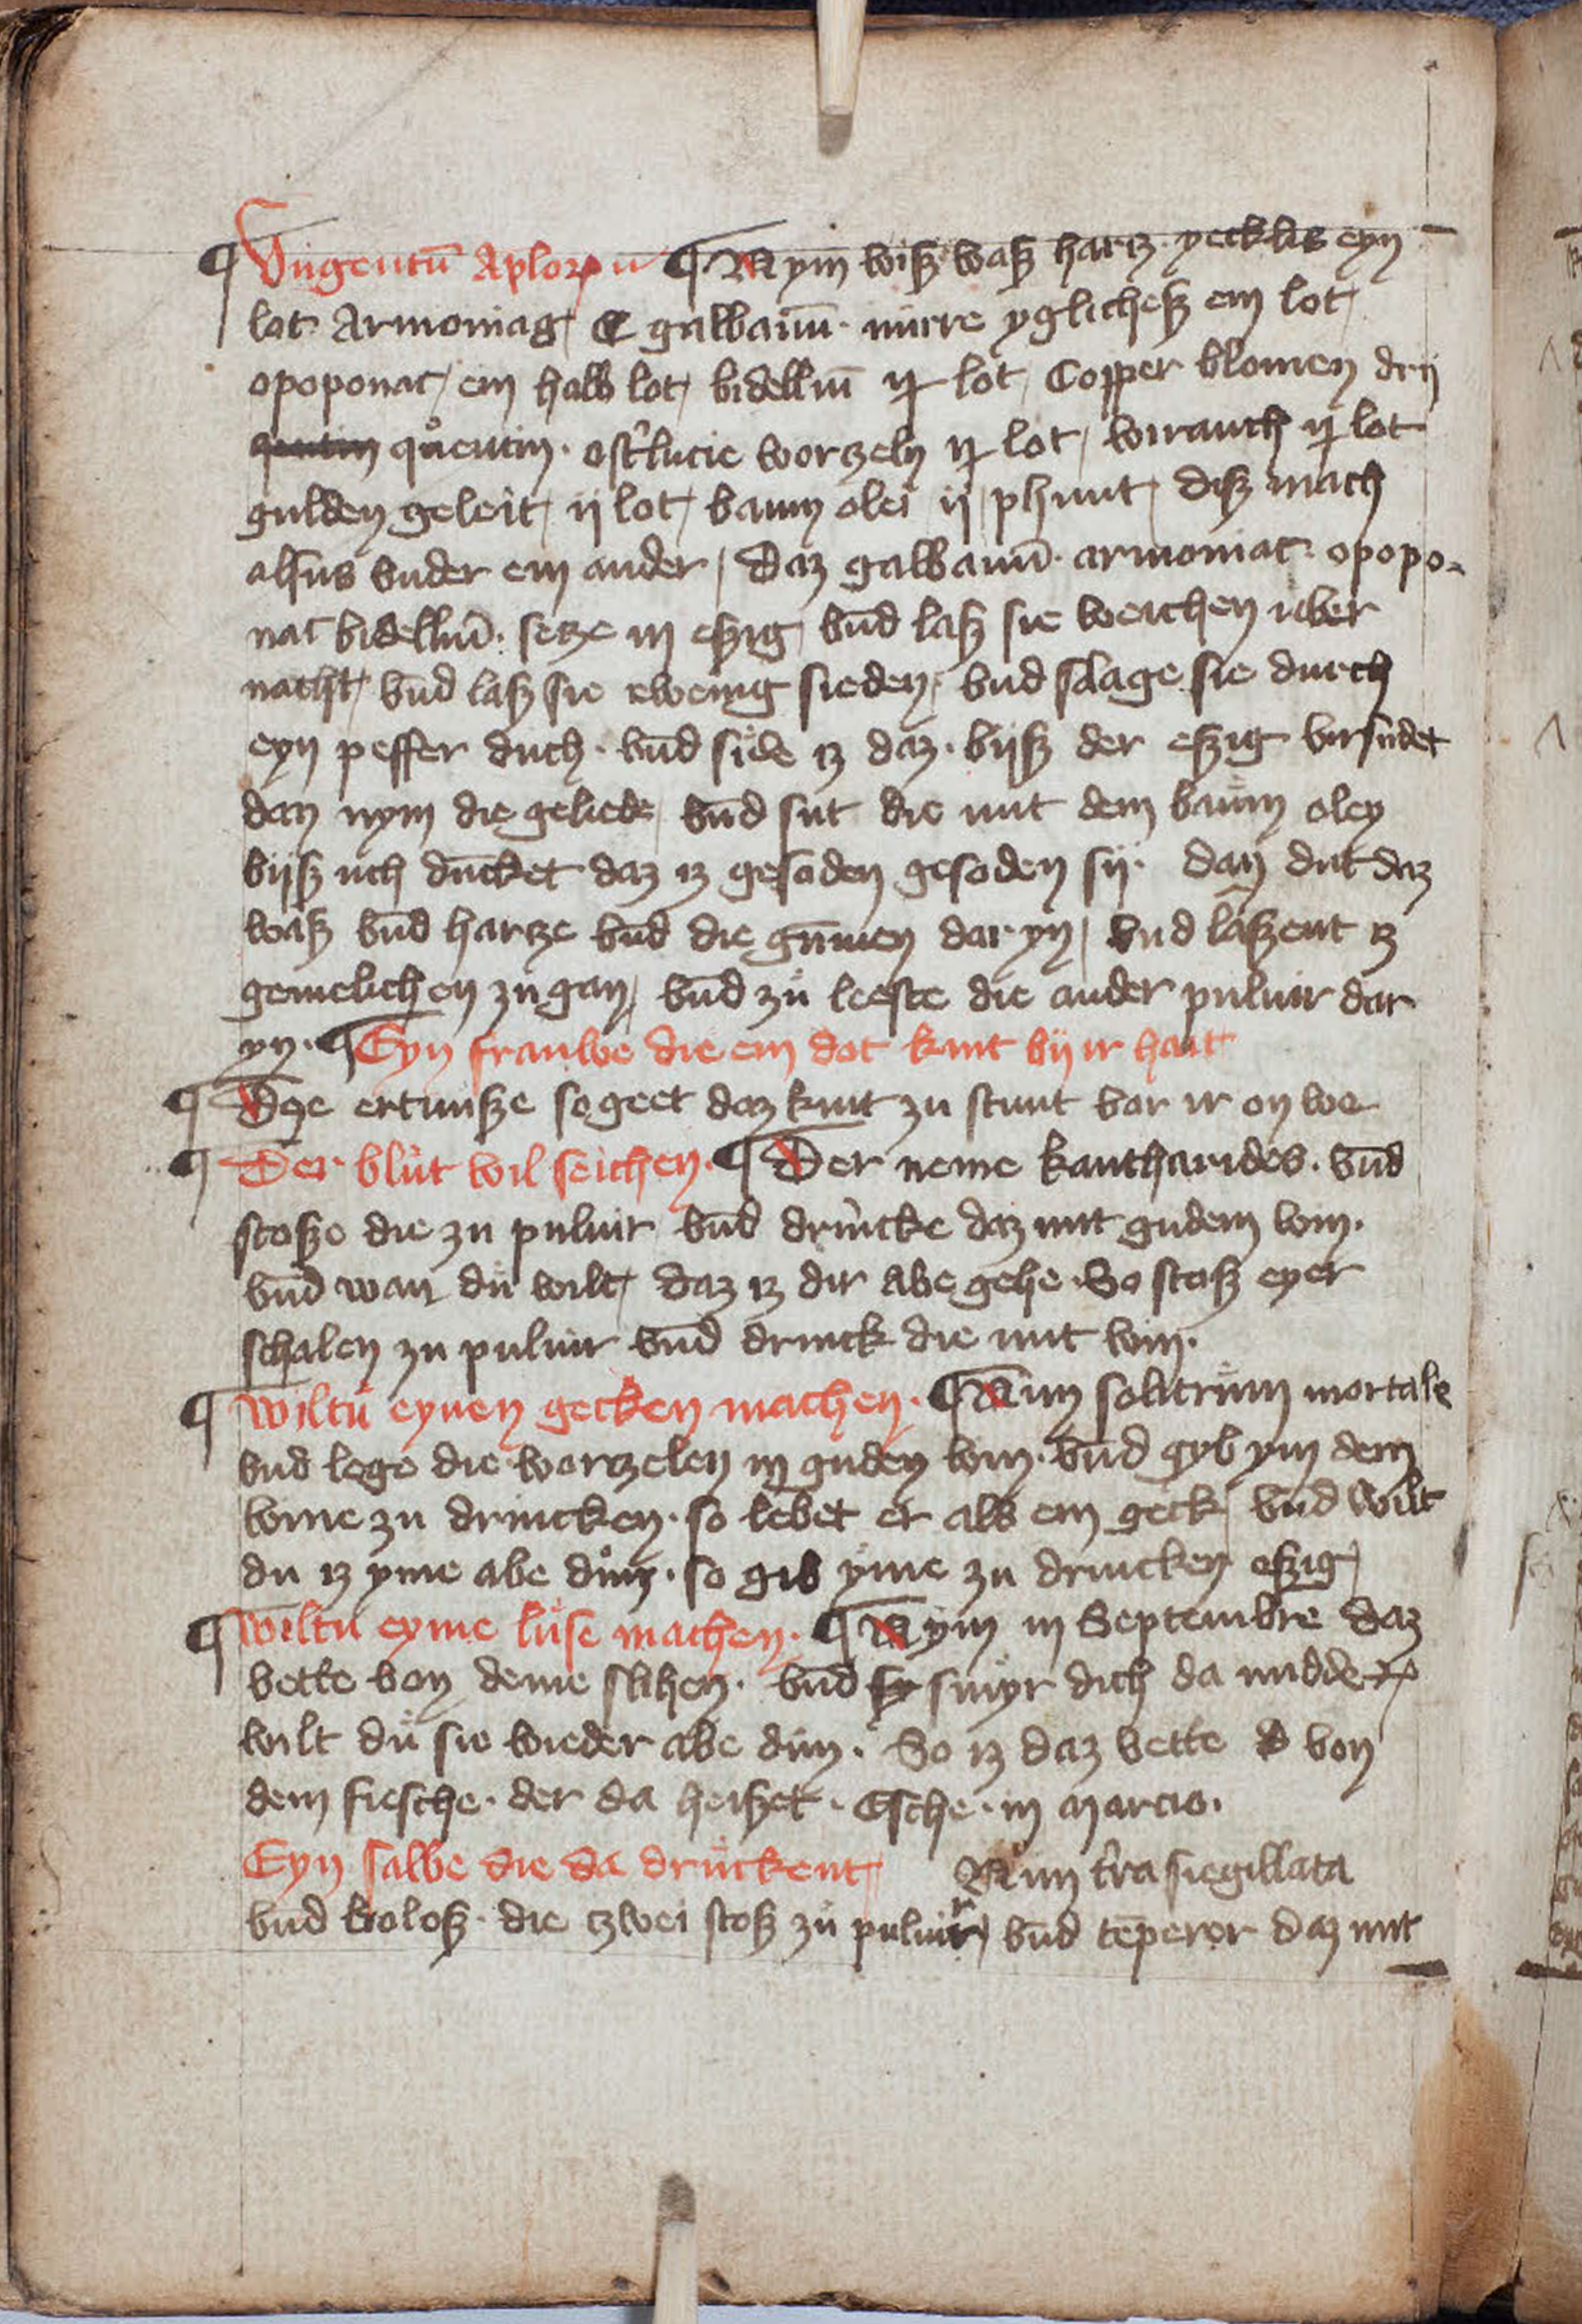 ¶ Vngentū Aplorꝝ ¶ Nym wiſz waſz hartz yecklis eyn
lot Armoniag galbanū mirre yglicheſz ein lot
opoponac ein halb lot bidelliū ij lot Copper blomen drij
quentin oſtˀlucie worzeln ij lot wirauch ij lot
gulden geleit ij lot baum olei ij phunt diſz mach
alſus vnder ein ander Daz galbanū armoniac opopo-
nac bidelliū ſetze in eſzig vnd laſz ſie weichen uber
nacht vnd laſz ſie ewenig ſieden vnd ſlage ſie durch
eyn peffer duch vnd ſide iz daz bijſz der eſzig virſudet
dan nym die geliede vnd ſut die mit dem baum oley
bijſz uch duncket daz iz geſoden geſoden ſij dan dut daz
waſz vnd hartze vnd die gūmen dar yn vnd laſzent iz
gemelichen zu gan vnd zu leeſte die ander puluir dar
yn ¶ Eyn frauwe die ein dot kint bij ir hait
¶ Die ertmiſze ſo geet daz kint zu ſtunt vor ir on we
¶ Der blut wil ſeichen ¶ Der neme kantharides vnd
ſtoſze die zu puluir vnd drincke daz mit gudem win
vnd wan du wilt daz iz dir abe gehe So ſtoſz eyer
ſchalen zu puluir vnd drinck die mit win
¶ Wiltu eynen gecken machen ¶ Nim ſolitrum mortale
vnd lege die worzelen in guden win vnd gyb ym dem
wine zu drincken ſo lebet er als ein geck vnd wilt
du iz yme abe dun ſo gib yme zu drincken eſzig
¶ Wiltu eyme luſe machen ¶ Nym in Septembre daz
vette von deme ſlihen vnd ſmyr dich da midde
wilt du ſie wieder abe dun So iz daz vette von
dem fiſche der da heiſzet Eſche in marcio
Eyn ſalbe die da druckent Nim tˀra ſiegillata
vnd boloſz die zwei ſtoſz zu puluir vnd tēperer daz mit